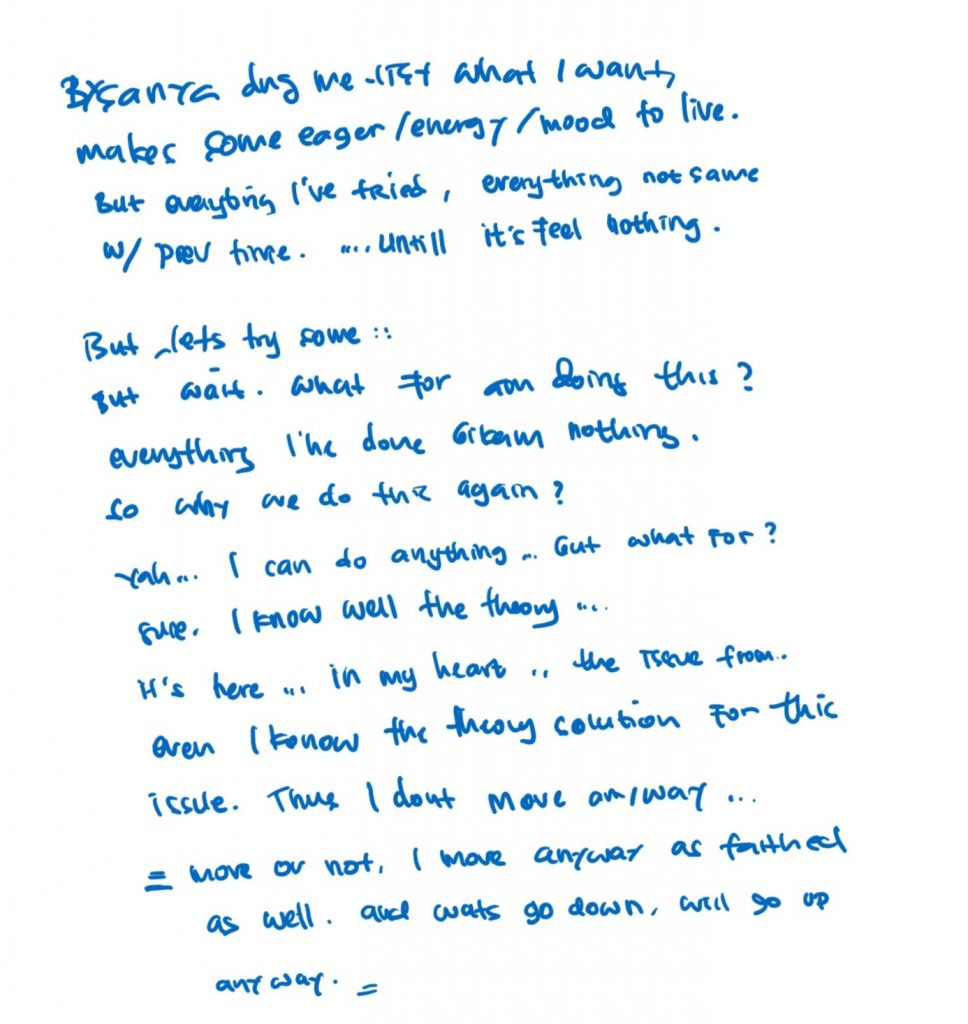 Bisanya dng me-list what I want,
makes some eager/energy/mood to live.
But everything I've tried, everything not same
w/ prev time. .... Untill it's feel nothing.
But lets try some ::
But wait. What for am doing this?
everything I've done became nothing.
So why we do this again?
Yah... I can do anything... but what for?
sure. I know well the theory ....
It's here ... in my heart .. the issue from..
even I know the theory solution for this
issue. Thus I dont move anyway ...
= move or not, I move anyway as faithed
as well. and wats go down, will go up
anyway. =